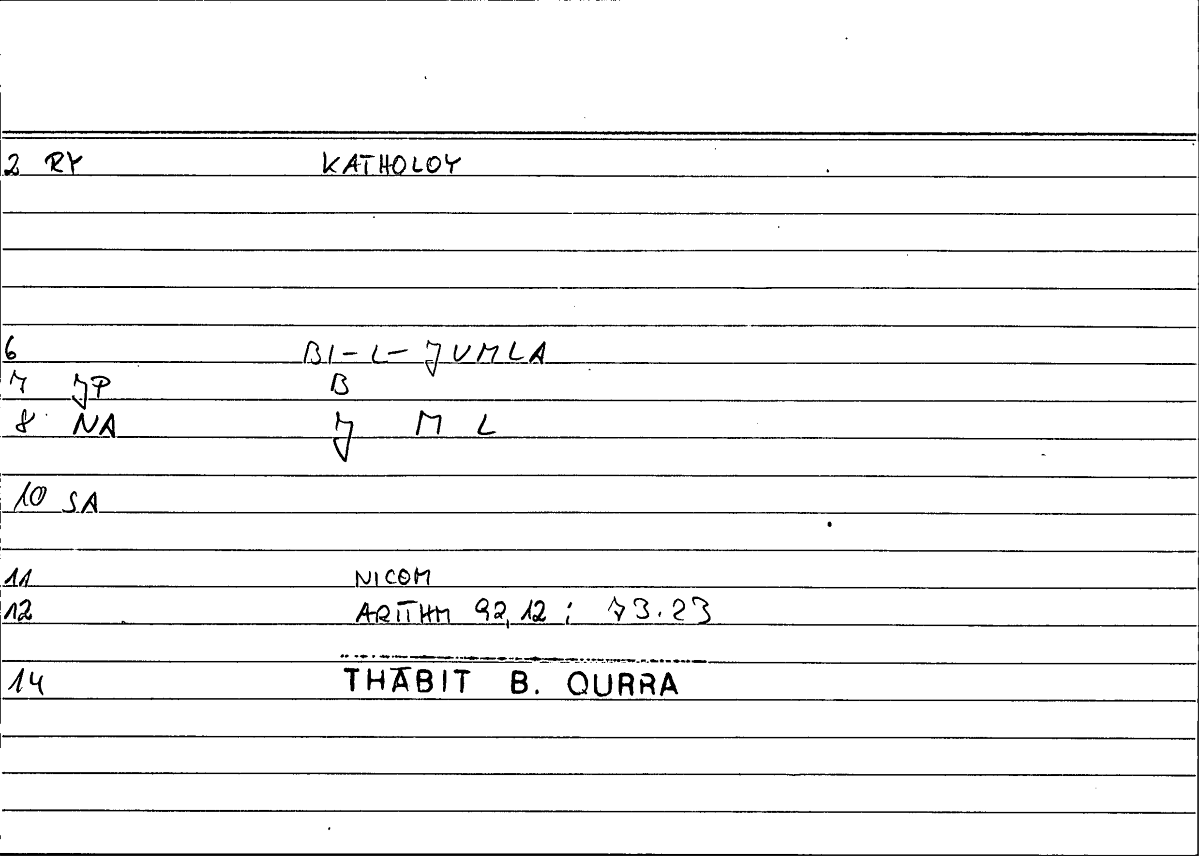 2 RY KATHOLOY
6 BI-L-JUMLA
7 JP B
8 NA J M L
10 SA
11 NICOM
12 ARITHM 92,12 ; 73.23
14 THĀBIT B. QURRA